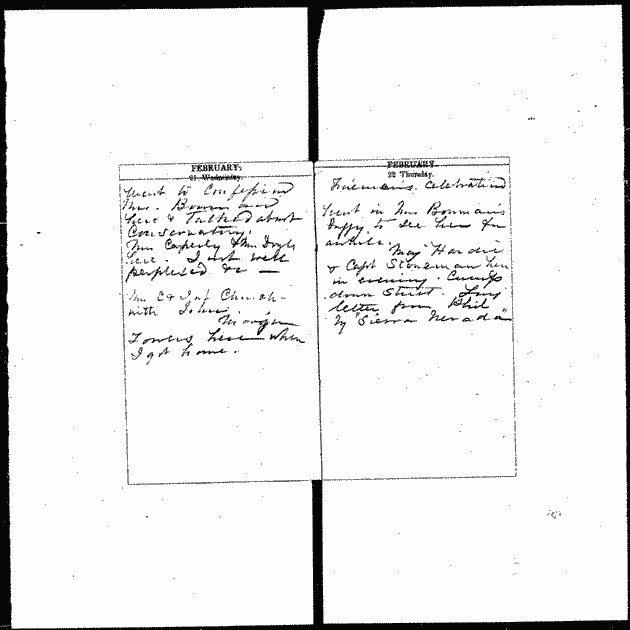 FEBRUARY.
21 Wednesday.
Went to Confession
Mrs. Bowman and
here & Talked about
Conservatory.
Mrs Caperly & Mrs Doyle
here. I not well
perplexed &c —
Mrs C & I at Church
with John.
Maggie
Towers here when
I got home.
FEBRUARY.
22 Thursday.
Firemain's. Celebration
Went in Mrs Bowman's
buggy to see her for
article. May Hardie
& Capt Stoneman here
in evening.
down Street. Long
letter from Phil
by "Sierra Nevada"